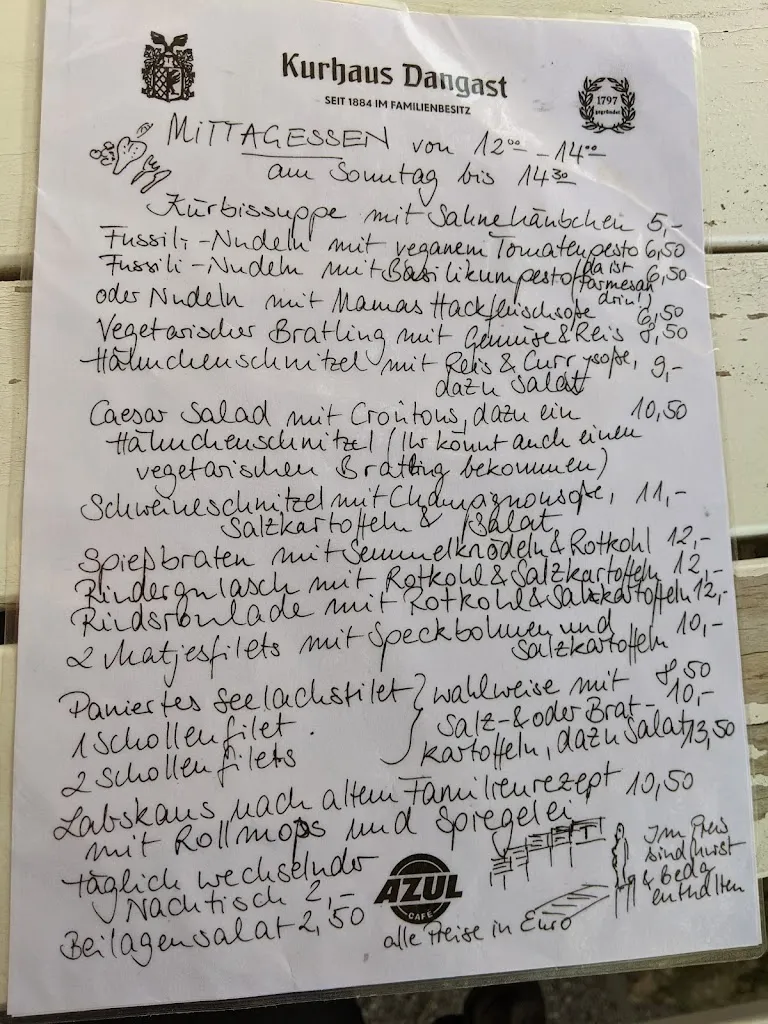 Kurhaus Dangast
SEIT 1884 IM FAMILIENBESITZ
1797
gegründet
MITTAGESSEN von 12⁰⁰ - 14⁰⁰
am Sonntag bis 14³⁰
Kürbissuppe mit Sahnehäubchen 5,-
Fussili-Nudeln mit veganem Tomatenpesto 6,50
Fussili-Nudeln mit Basilikumpesto (da ist Parmesan drin!) 6,50
oder Nudeln mit Mamas Hackfleischsoße 6,50
Vegetarischer Bratling mit Gemüse & Reis 8,50
Hähnchenschnitzel mit Reis & Currysoße, 9,-
dazu Salat
Caesar Salad mit Croûtons, dazu ein 10,50
Hähnchenschnitzel (Ihr könnt auch einen
vegetarischen Bratling bekommen)
Schweineschnitzel mit Champagnonsoße, 11,-
Salzkartoffeln & Salat
Spießbraten mit Semmelknödeln & Rotkohl 12,-
Rindergulasch mit Rotkohl & Salzkartoffeln 12,-
Rindsroulade mit Rotkohl & Salzkartoffeln 12,-
2 Matjesfilets mit Speckbohnen und 10,-
Salzkartoffeln
Paniertes Seelachsfilet } wahlweise mit 8,50
1 Schollenfilet. Salz- & oder Brat- 10,-
2 Schollenfilets kartoffeln, dazu Salat 13,50
Labskaus nach altem Familienrezept 10,50
mit Rollmops und Spiegelei
täglich wechselnder
Nachtisch 2,-
Beilagensalat 2,50
AZUL
CAFÉ
alle Preise in Euro
Im Preis
sind Mwst
& Bedg
enthalten